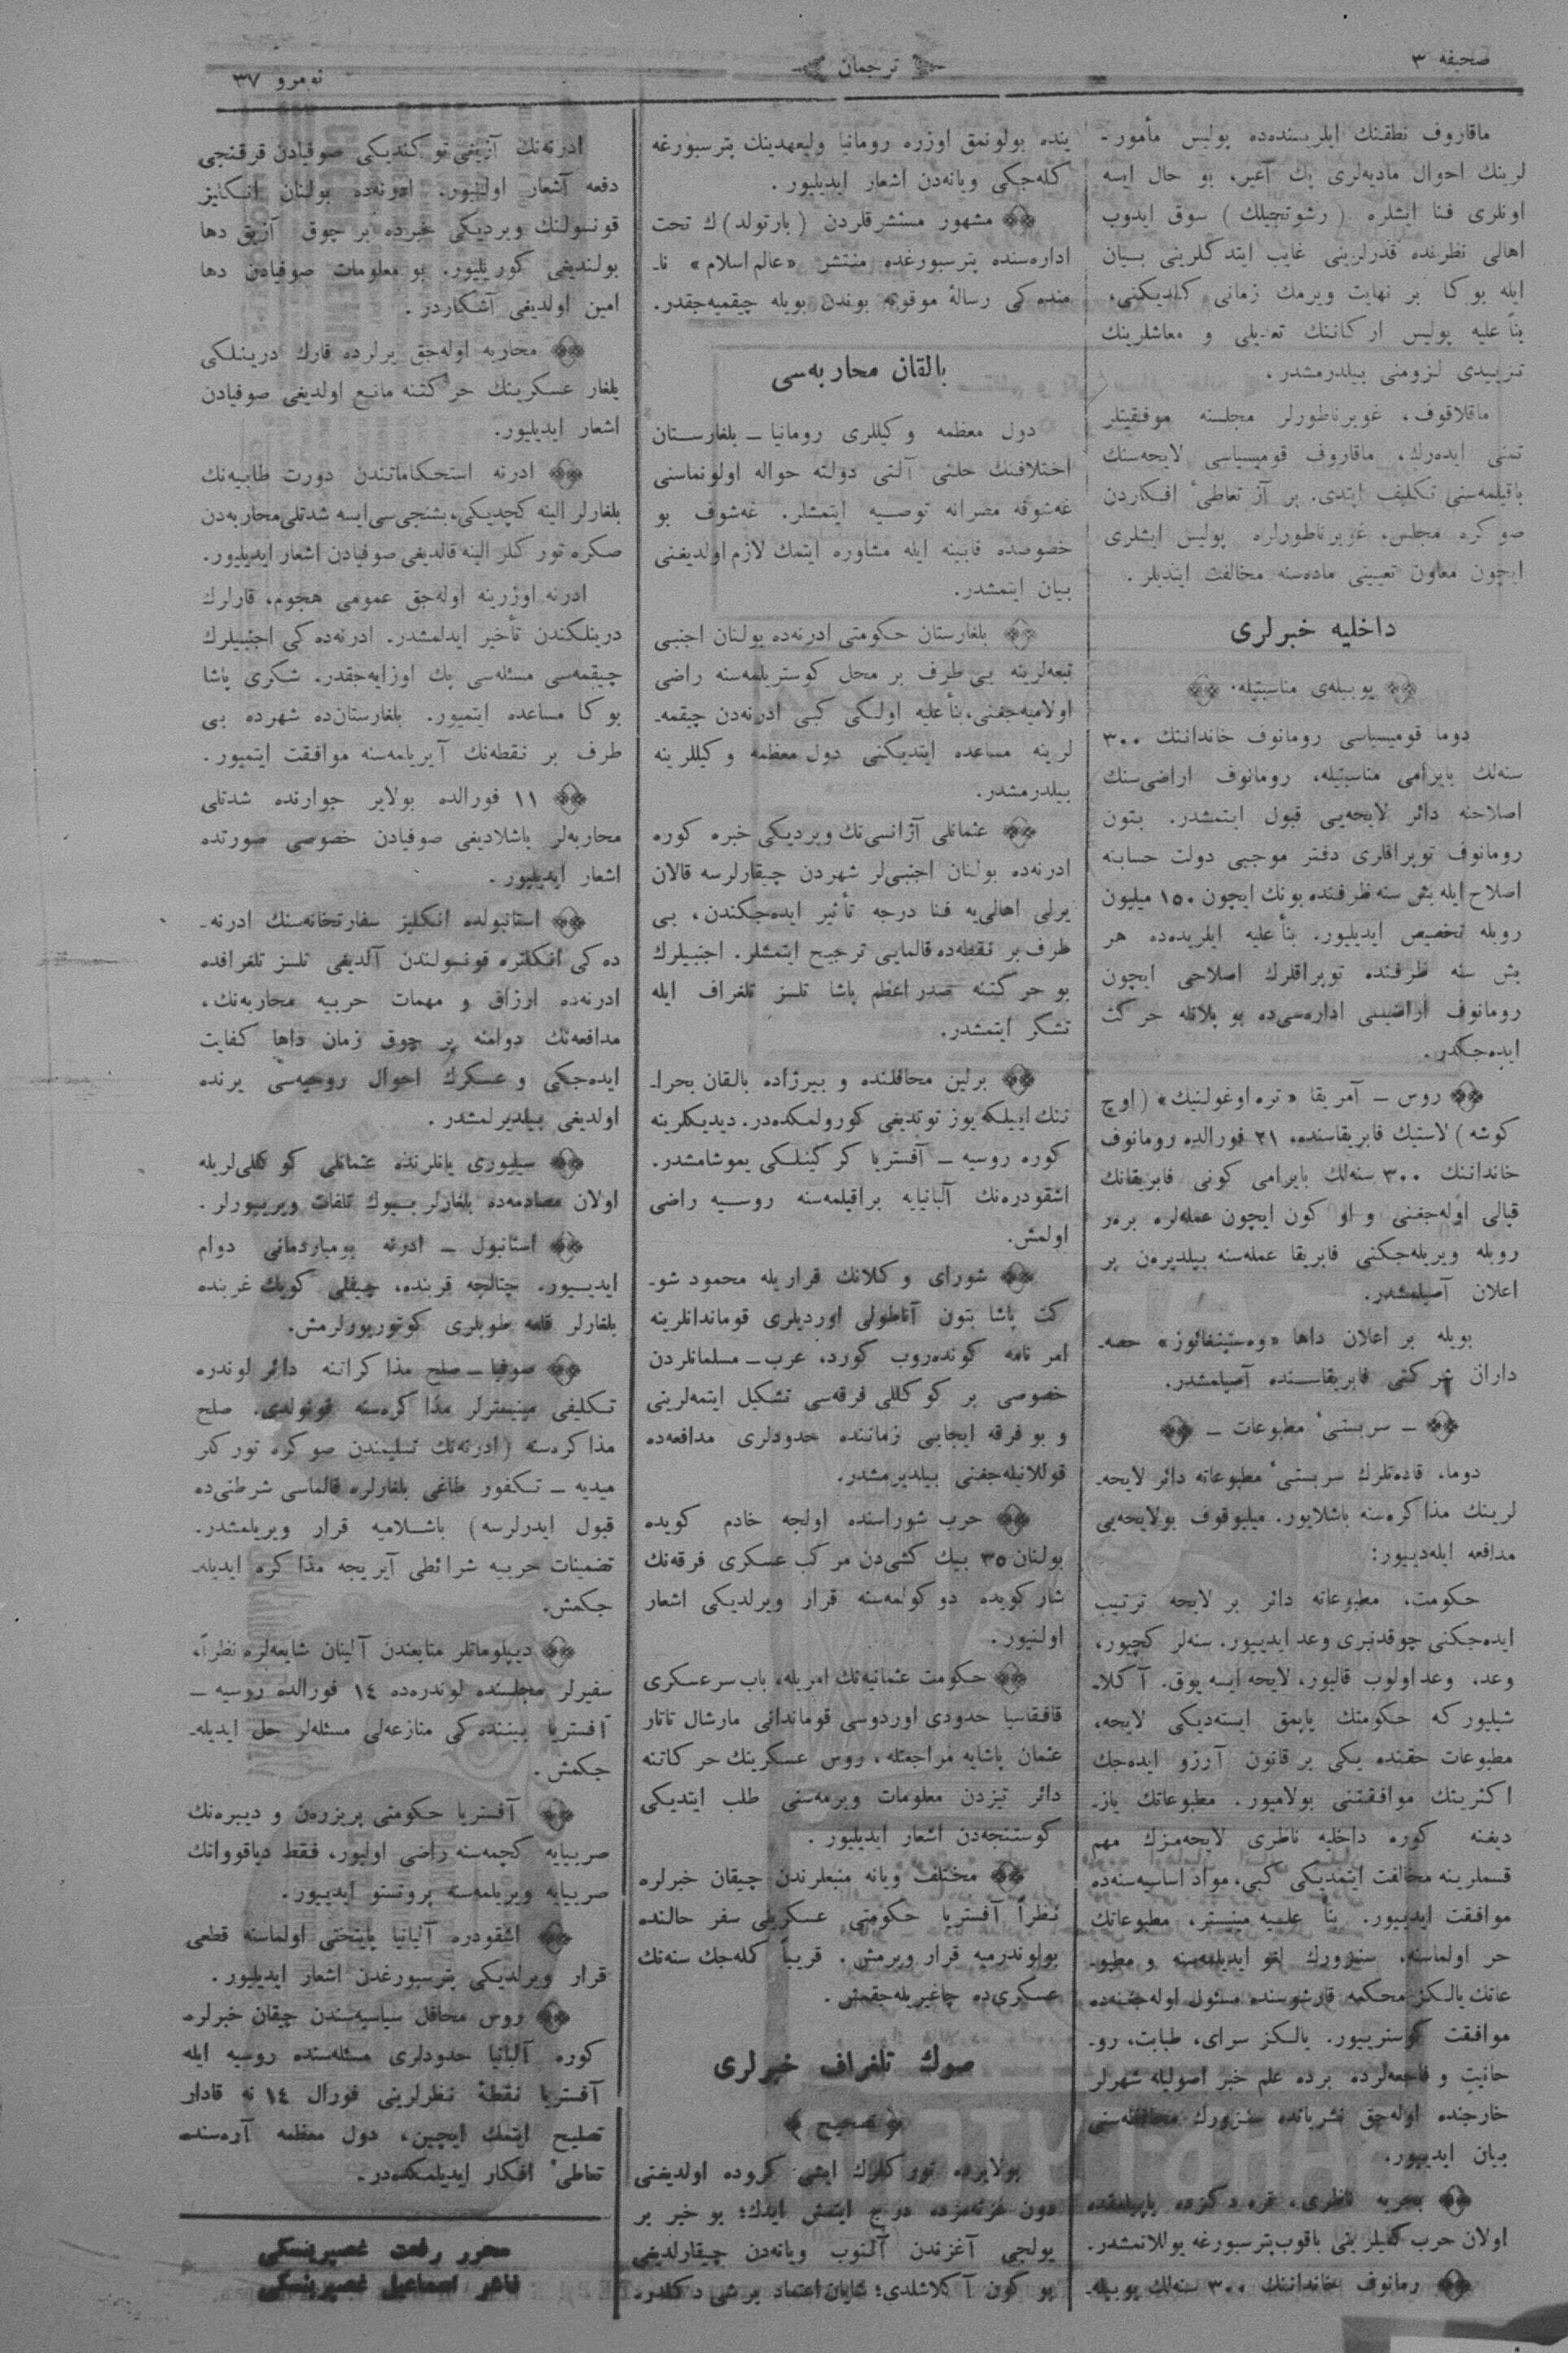 صحیفه ۳
ترجمان
نەمرو ۳۷
ماقاروف نطقنك ایلریسنده‌ده پولیس مأمور-
لرینك احوال مادیه‌لری پك آغیر، بو حال ایسه
اونلری فنا ایشلره (رشوتچیلك) سوق ایدوب
اهالی نظرنده قدرلرینی غایب ایتدكلرینی بیان
ایله بوكا بر نهایت ویرمك زمانی كلدیكنی،
بناً علیه پولیس اركاننك تعدیلی و معاشلرینك
تزییدی لزومنی بیلدرمشدر.
ماقلاقوف، غوبرناطورلر مجلسنه موفقیتلر
تمنی ایده‌رك، ماقاروف قومیسیاسی لایحه‌سنك
باقیلمه‌سنی تكلیف ایتدی. بر آز تعاطیٔ افكاردن
صوكره مجلس، غوبرناطورلره پولیس ایشلری
ایچون معاون تعیینی ماده‌سنه مخالفت ایتدیلر.
داخلیه خبرلری
یوبیله‌ی مناسبتیله.
دوما قومیسیاسی رومانوف خانداننك ۳۰۰
سنه‌لك بایرامی مناسبتیله، رومانوف اراضی‌سنك
اصلاحنه دائر لایحه‌یی قبول ایتمشدر. بتون
رومانوف توپراقلری دفتر موجبی دولت حسابنه
اصلاح ایله بش سنه ظرفنده بونك ایچون ۱۵۰ میلیون
روبله تخصیص ایدیلیور. بناً علیه ایلریده‌ده هر
بش سنه ظرفنده توپراقلرك اصلاحی ایچون
رومانوف اراضیسی اداره‌سی‌ده بو پلانله حركت
ایده‌جكدر.
روس ــ آمریقا «تره‌اوغولنیك» (اوچ
كوشه) لاستیك فابریقاسنده، ۲۱ فورالده رومانوف
خانداننك ۳۰۰ سنه‌لك بایرامی كونی فابریقانك
قپالی اوله‌جغنی و او كون ایچون عمله‌لره بره‌ر
روبله ویریله‌جكنی فابریقا عمله‌سنه بیلدیره‌ن بر
اعلان آصیلمشدر.
بویله بر اعلان داها «وه‌ستینغائوز» حصه‌-
داران شركتی فابریقاسنده آصیلمشدر.
ــ سربستیٔ مطبوعات ــ
دوما، قاده‌تلرك سربستیٔ مطبوعاته دائر لایحه‌-
لرینك مذاكره‌سنه باشلایور. میلیوقوف بولایحه‌یی
مدافعه ایله‌دییور:
حكومت، مطبوعاته دائر بر لایحه ترتیب
ایده‌جكنی چوقدنبری وعد ایدییور. سنه‌لر كچیور،
وعد، وعد اولوب قالیور، لایحه ایسه یوق. آكلا-
شیلیور كه حكومتك یاپمق ایسته‌دیكی لایحه،
مطبوعات حقنده یكی بر قانون آرزو ایده‌جك
اكثریتك موافقتنی بولامیور. مطبوعاتك یاز-
دیغنه كوره داخلیه ناظری لایحه‌مزك مهم
قسملرینه مخالفت ایتمدیكی كبی، مواد اساسیه‌سنه‌ده
موافقت ایدییور. بناً علیه مینیستر، مطبوعاتك
حر اولماسنه، سنزورك لغو ایدیلمه‌سنه و مطبو-
عاتك یالكز محكمه قارشوسنده مسئول اوله‌جغنه‌ده
موافقت كوسترییور. یالكز سرای، طبابت، رو-
حانیت و فاجعه‌لرده برده علم خبر اصولیله شهرلر
خارجنده اوله‌جق نشریاتده سنزورك محافظه‌سنی
بیان ایدییور.
بحریه ناظری، قره دكزده یاپیلمقده
اولان حرب كمیلرینی باقوب پترسبورغه یوللانمشدر.
رمانوف خانداننك ۳۰۰ سنه‌لك یوبیله‌-
ینده بولونمق اوزره رومانیا ولیعهدینك پترسبورغه
كله‌جكی ویانه‌دن اشعار ایدیلیور.
مشهور مستشرقلردن (بارتولد)ك تحت
اداره‌سنده پترسبورغده منتشر «عالم اسلام» نا-
منده‌كی رسالۀ موقوته بوندن بویله چیقمیه‌جقدر.
بالقان محاربه‌سی
دول معظمه وكیللری رومانیا ــ بلغارستان
اختلافنك حلنی آلتی دولته حواله اولونماسنی
غه‌شوفه مصرانه توصیه ایتمشلر. غه‌شوف بو
خصوصده قابینه ایله مشاوره ایتمك لازم اولدیغنی
بیان ایتمشدر.
بلغارستان حكومتی ادرنه‌ده بولنان اجنبی
تبعه‌لرینه بی طرف بر محل كوستریلمه‌سنه راضی
اولامیه‌جغنی، بناً علیه اولكی كبی ادرنه‌دن چیقمه‌-
لرینه مساعده ایتدیكنی دول معظمه وكیللرینه
بیلدرمشدر.
عثمانلی آژانسی‌نك ویردیكی خبره كوره
ادرنه‌ده بولنان اجنبی‌لر شهردن چیقارلرسه قالان
یرلی اهالی‌یه فنا درجه تأثیر ایده‌جكندن، بی
طرف بر نقطه‌ده قالمایی ترجیح ایتمشلر. اجنبیلرك
بو حركتنه صدر اعظم پاشا تلسز تلغراف ایله
تشكر ایتمشدر.
برلین محافلنده و بیرژاده بالقان بحرا-
ننك اییلكه یوز توتدیغی كورولمكده‌در. دیدیكلرینه
كوره روسیه ــ آفستریا كركینلكی یموشامشدر.
اشقودره‌نك آلبانیایه براقیلمه‌سنه روسیه راضی
اولمش.
شورای وكلانك قراریله محمود شو-
كت پاشا بتون آناطولی اوردیلری قوماندانلرینه
امر نامه كونده‌روب كورد، عرب ــ مسلمانلردن
خصوصی بر كوكللی فرقه‌سی تشكیل ایتمه‌لرینی
و بو فرقه ایجابی زماننده حدودلری مدافعه‌ده
قوللانیله‌جغنی بیلدیرمشدر.
حرب شوراسنده اولجه خادم كویده
بولنان ۳۵ بیك كشی‌دن مركب عسكری فرقه‌نك
شاركویده دوكولمه‌سنه قرار ویرلدیكی اشعار
اولنیور.
حكومت عثمانیه‌نك امریله، باب سرعسكری
قافقاسیا حدودی اوردوسی قوماندانی مارشال تاتار
عثمان پاشایه مراجعتله، روس عسكرینك حركاتنه
دائر تیزدن معلومات ویرمه‌سنی طلب ایتدیكی
كوستنجه‌دن اشعار ایدیلیور.
مختلف ویانه منبعلرندن چیقان خبرلره
نظراً آفستریا حكومتی عسكرینی سفر حالنده
بولوندرمیه قرار ویرمش. قریباً كله‌جك سنه‌نك
عسكری‌ده چاغیریله‌جقمش.
صوك تلغراف خبرلری
(تصحیح)
بولایرده توركلرك ایشی كروده اولدیغنی
دون غزته‌مزده درج ایتمش ایدك؛ بو خبر بر
یولجی آغزندن آلنوب ویانه‌دن چیقارلدیغی
بو كون آكلاشلدی؛ شایان اعتماد بر شی دكلدر.
ادرنه‌نك آزیغی توكندیكی صوفیادن قرقنجی
دفعه اشعار اولنیور. ادرنه‌ده بولنان انكلیز
قونسولنك ویردیكی خبرده بر چوق آزیق دها
بولندیغی كوریلیور. بو معلومات صوفیادن دها
امین اولدیغی آشكاردر.
محاربه اوله‌جق یرلرده قارك درینلكی
بلغار عسكرینك حركتنه مانع اولدیغی صوفیادن
اشعار ایدیلیور.
ادرنه استحكاماتندن دورت طابیه‌نك
بلغارلر الینه كچدیكی، بشنجی‌سی ایسه شدتلی محاربه‌دن
صكره توركلر الینه قالدیغی صوفیادن اشعار ایدیلیور.
ادرنه اوزرینه اوله‌جق عمومی هجوم، قارلرك
درینلكندن تأخیر ایدلمشدر. ادرنه‌ده‌كی اجنبیلرك
چیقمه‌سی مسئله‌سی پك اوزایه‌جقدر. شكری پاشا
بوكا مساعده ایتمیور. بلغارستان‌ده شهرده بی
طرف بر نقطه‌نك آیریلمه‌سنه موافقت ایتمیور.
۱۱ فورالده بولایر جوارنده شدتلی
محاربه‌لر باشلادیغی صوفیادن خصوصی صورتده
اشعار ایدیلیور.
استانبولده انكلیز سفارتخانه‌سنك ادرنه‌-
ده‌كی انكلتره قونسولندن آلدیغی تلسز تلغرافده
ادرنه‌ده ارزاق و مهمات حربیه محاربه‌نك،
مدافعه‌نك دوامنه بر چوق زمان داها كفایت
ایده‌جكی و عسكرك احوال روحیه‌سی یرنده
اولدیغی بیلدیرلمشدر.
سیلیوری یانلرنده عثمانلی كوكللی‌لریله
اولان مصادمه‌ده بلغارلر بیوك تلفات ویرییورلر.
استانبول ــ ادرنه بومباردمانی دوام
ایدییور. چتالجه قربنده، چیفلی كویك غربنده
بلغارلر قلعه طوپلری كوتوریورلرمش.
صوفیا ــ صلح مذاكراتنه دائر لوندره
تكلیفی مینیسترلر مذاكره‌سنه قونولدی. صلح
مذاكره‌سنه (ادرنه‌نك تسلیمندن صوكره توركلر
میدیه ــ تكفور طاغی بلغارلره قالماسی شرطنی‌ده
قبول ایدرلرسه) باشلامیه قرار ویریلمشدر.
تضمینات حربیه شرائطی آیریجه مذاكره ایدیله‌-
جكمش.
دیپلوماتلر منابعندن آلینان شایعه‌لره نظراً،
سفیرلر مجلسنده لوندره‌ده ۱٤ فورالده روسیه ــ
آفستریا بیننده‌كی منازعه‌لی مسئله‌لر حل ایدیله‌-
جكمش.
آفستریا حكومتی پریزره‌ن و دیبره‌نك
صربیایه كچمه‌سنه راضی اولیور، فقط دیاقووانك
صربیایه ویریلمه‌سنه پروتستو ایدییور.
اشقودره آلبانیا پایتختی اولماسنه قطعی
قرار ویرلدیكی پترسبورغدن اشعار ایدیلیور.
روس محافل سیاسیه‌سندن چیقان خبرلره
كوره آلبانیا حدودلری مسئله‌سنده روسیه ایله
آفستریا نقطۀ نظرلرینی فورال ۱٤ نه قادار
تصلیح ایتمك ایچین، دول معظمه آره‌سنده
تعاطیٔ افكار ایدیلمكده‌در.
محرر رفعت غصپرینسكی
ناشر اسماعیل غصپرینسكی